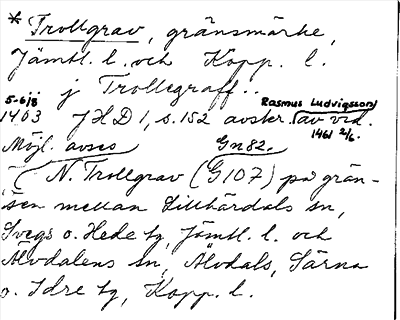 * Trollgrav, gränsmärke,
Jämtl. l. och Kopp. l.
.. j Trollegraff ..
5-6/8 Rasmus Ludvigsson
1403 JHD 1, s. 152 avskr. av vid.
1461 2/6.
Möjl. avses Gn82.
N. Trollgrav (G107) på grän-
sen mellan Lillhärdals sn,
Svegs o. Hede tg, Jämtl. l. och
Älvdalens sn, Älvdals, Särna
o. Idre tg, Kopp. l.